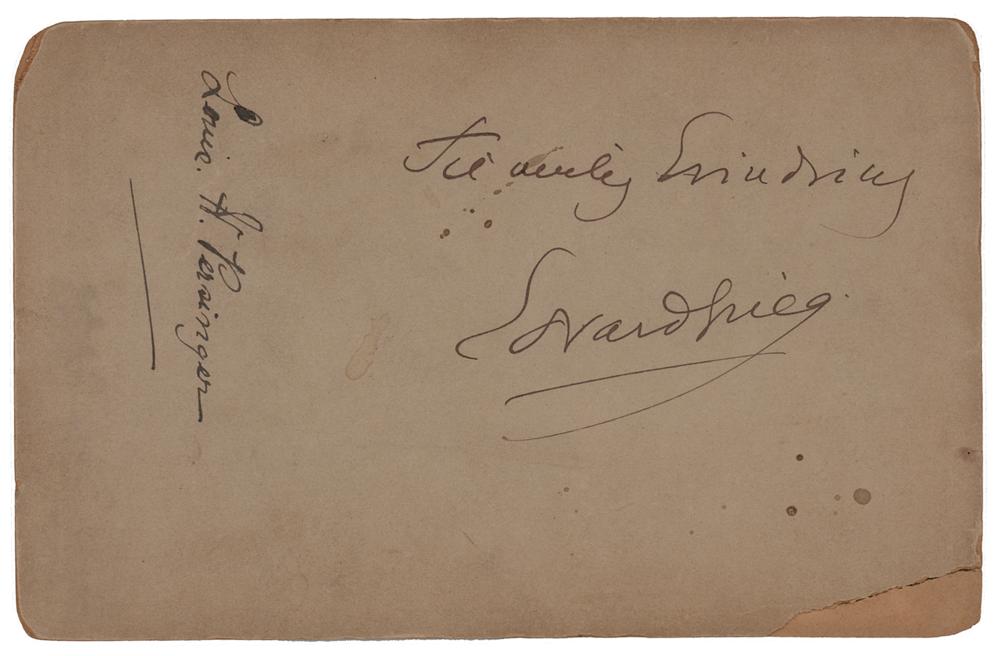 Til venlig Erindring
Edvard Grieg.
Louis. H. Persinger